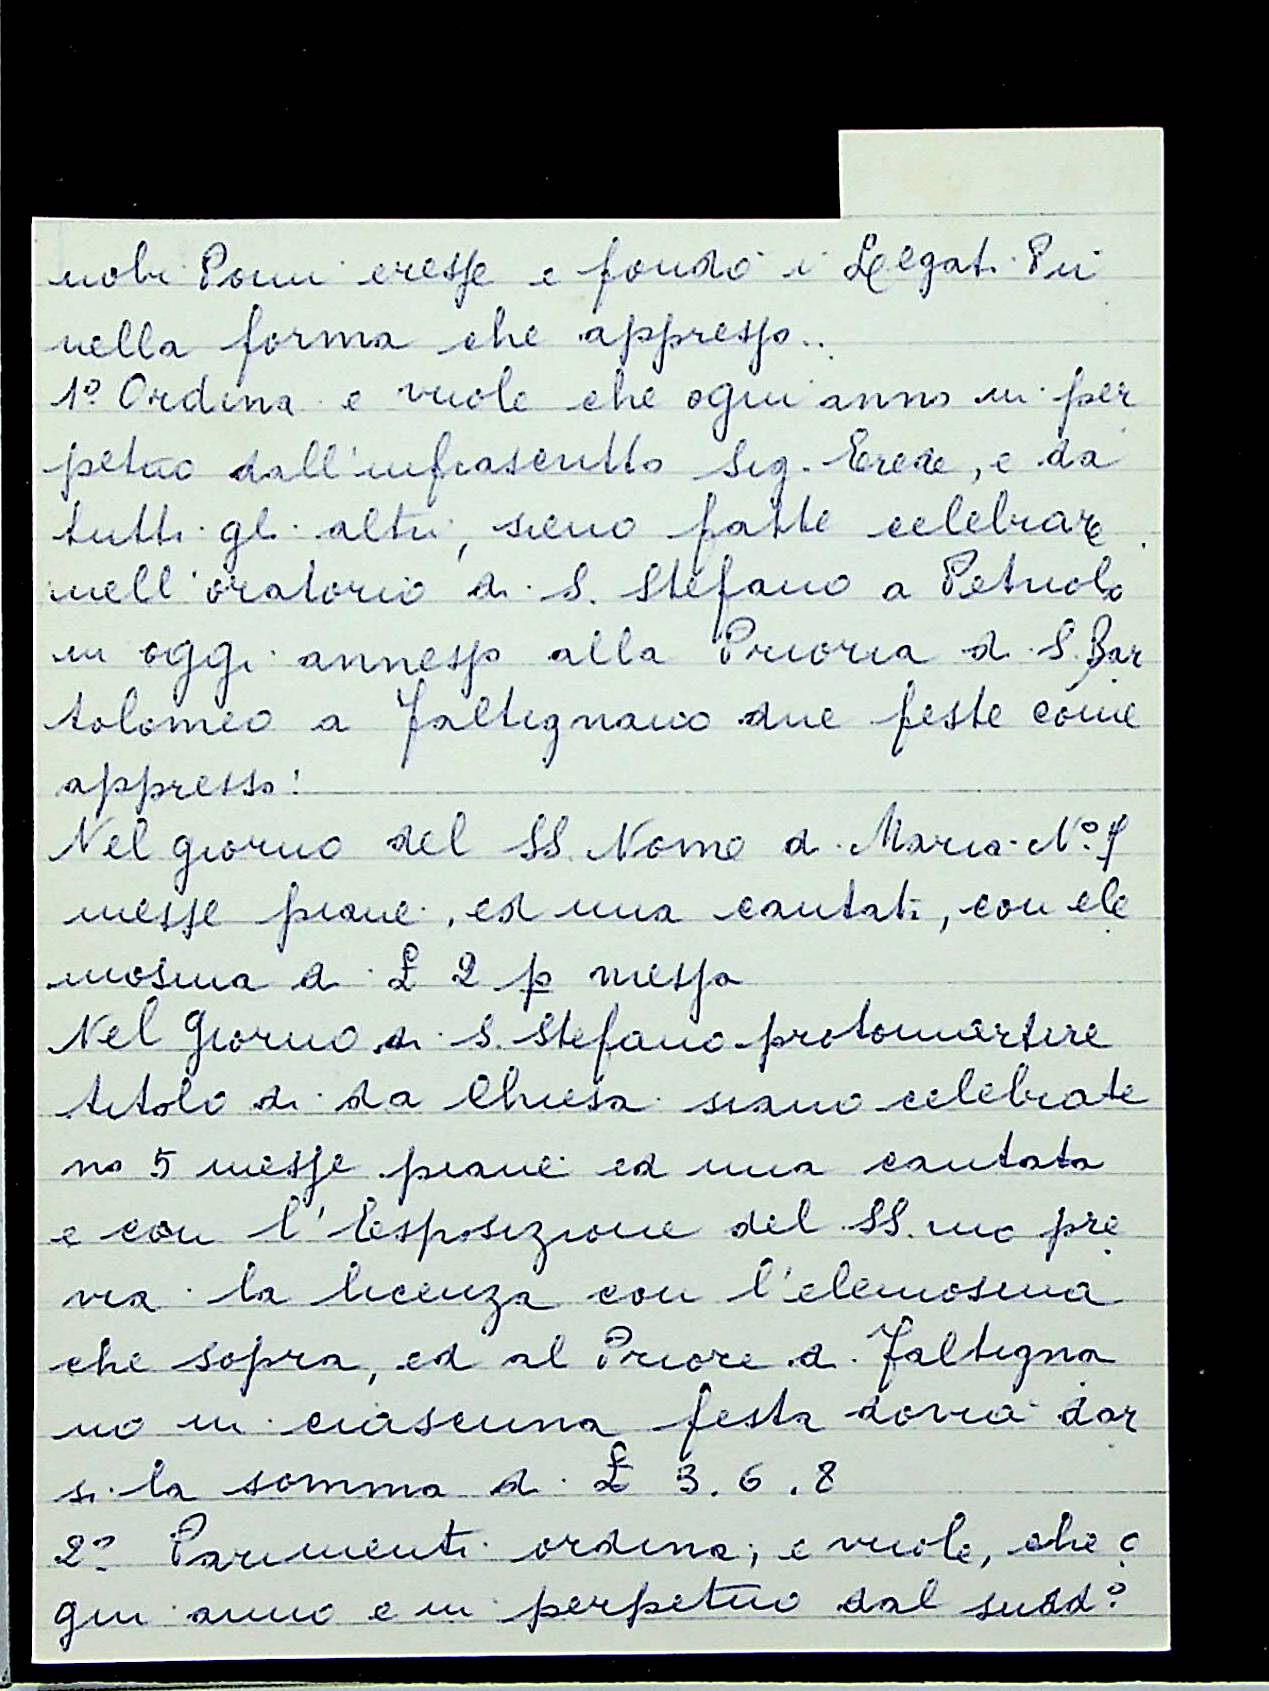 nobi Pomi eresse e fondò i Legati Pii
nella forma che appresso..
1º Ordina e vuole che ogni anno in per
petuo dall'infrascritto Sig. Erede, e da
tutti gli altri, sieno fatte celebrare
nell'oratorio di S. Stefano a Petriolo
in oggi annesso alla Prioria di S. Bar
tolomeo a Faltignano due feste come
appresso:
Nel giorno del SS. Nome di Maria Nº 4
messe piane, ed una cantata, con ele
mosina di £ 2 p messa
Nel Giorno di S. Stefano protomartire
titolo di da Chiesa siano celebrate
no 5 messe piane ed una cantata
e con l'Esposizione del SS.mo pre
via la licenza con l'elemosina
che sopra, ed al Priore di Faltigna
no in ciascuna festa dovrà dar
si la somma di £ 3.6.8
2º Parimenti ordina, e vuole, che o
gni anno e in perpetuo dal sudd.º